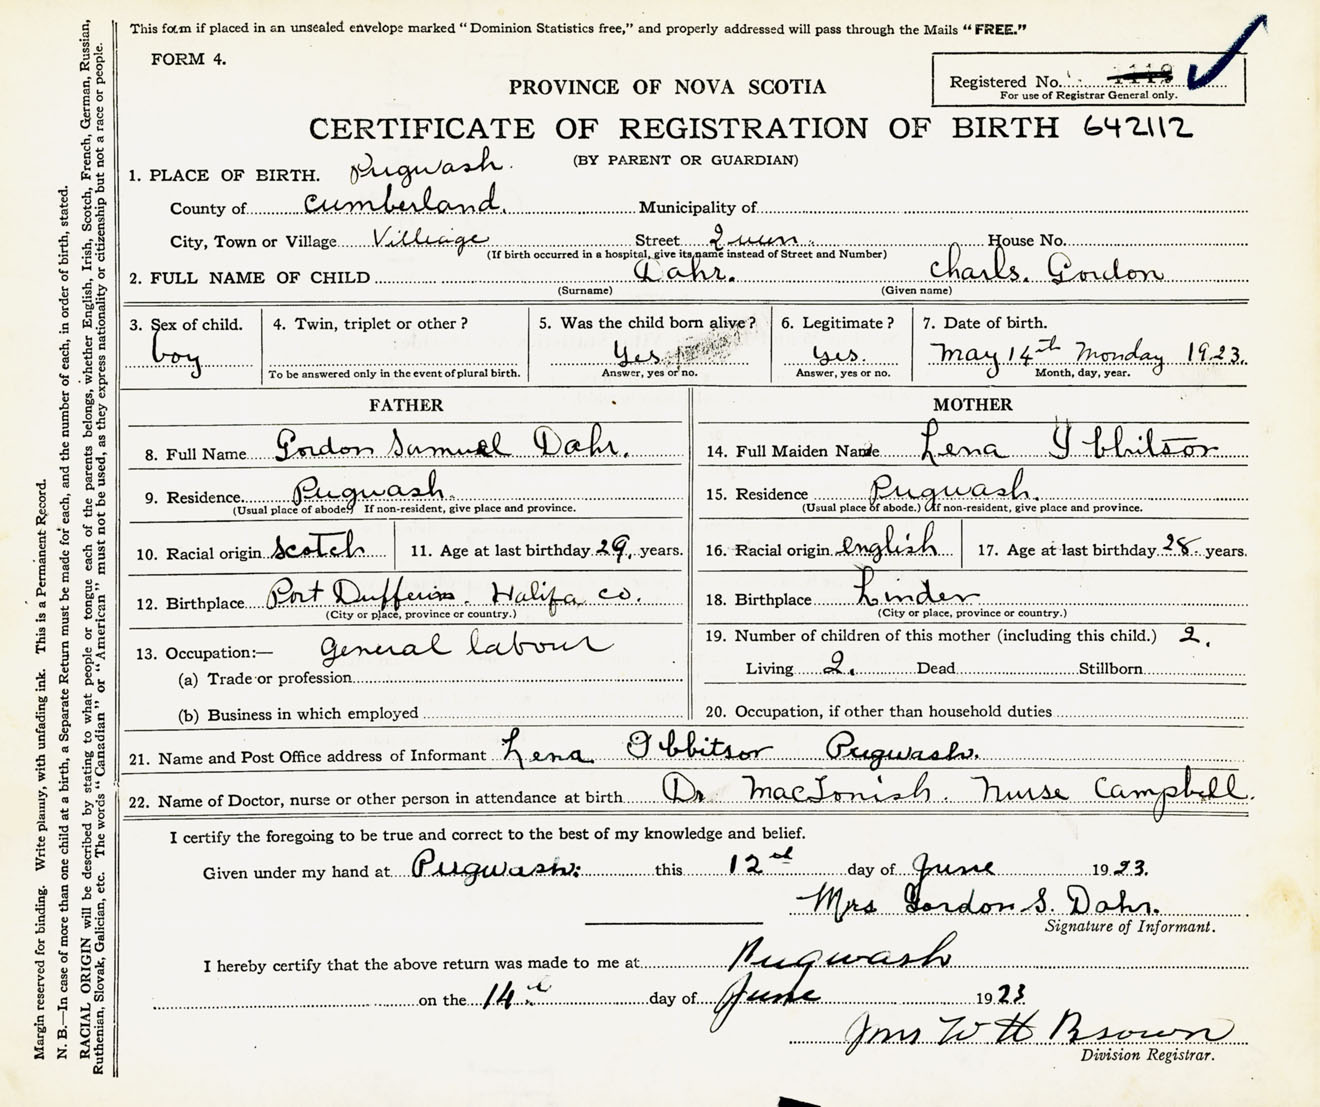 This form if placed in an unsealed envelope marked "Dominion Statistics free," and properly addressed will pass through the Mails "FREE."
FORM 4.
PROVINCE OF NOVA SCOTIA
Registered No. 1119
For use of Registrar General only.
CERTIFICATE OF REGISTRATION OF BIRTH 642112
(BY PARENT OR GUARDIAN)
1. PLACE OF BIRTH. Pugwash.
County of Cumberland. Municipality of
City, Town or Village Villiage Street Queen. House No.
(If birth occurred in a hospital, give its name instead of Street and Number)
2. FULL NAME OF CHILD Dahr. Charls. Gordon
(Surname) (Given name)
3. Sex of child. 4. Twin, triplet or other? 5. Was the child born alive? 6. Legitimate? 7. Date of birth.
boy Yes yes. May 14th Monday 1923.
To be answered only in the event of plural birth. Answer, yes or no. Answer, yes or no. Month, day, year.
FATHER MOTHER
8. Full Name Gordon Samuel Dahr. 14. Full Maiden Name Lena Ibbitsor
9. Residence Pugwash. 15. Residence Pugwash.
(Usual place of abode) If non-resident, give place and province. (Usual place of abode.) (If non-resident, give place and province.
10. Racial origin scotch 11. Age at last birthday 29. years. 16. Racial origin english 17. Age at last birthday 28. years.
12. Birthplace Port Dufferin. Halifa co. 18. Birthplace Linden
(City or place, province or country.) (City or place, province or country.)
13. Occupation:— general labour 19. Number of children of this mother (including this child.) 2.
(a) Trade or profession Living 2. Dead Stillborn
(b) Business in which employed 20. Occupation, if other than household duties
21. Name and Post Office address of Informant Lena Ibbitsor Pugwash.
22. Name of Doctor, nurse or other person in attendance at birth Dr MacTonish. Nurse Campbell.
I certify the foregoing to be true and correct to the best of my knowledge and belief.
Given under my hand at Pugwash: this 12nd day of June 1923.
Mrs Gordon S. Dahr.
Signature of Informant.
I hereby certify that the above return was made to me at Pugwash
on the 14th day of June 1923
Jms W H Brown
Division Registrar.
Margin reserved for binding. Write plainly, with unfading ink. This is a Permanent Record.
N. B.—In case of more than one child at a birth, a Separate Return must be made for each, and the number of each, in order of birth, stated.
RACIAL ORIGIN will be described by stating to what people or tongue each of the parents belongs, whether English, Irish, Scotch, French, German, Russian,
Ruthenian, Slovak, Galician, etc. The words "Canadian" or "American" must not be used, as they express nationality or citizenship but not a race or people.